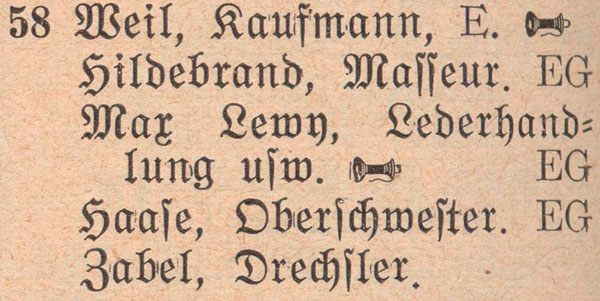 58 Weil, Kaufmann, E.
Hildebrand, Masseur. EG
Max Lewy, Lederhand-
lung usw. EG
Haase, Oberschwester. EG
Zabel, Drechsler.